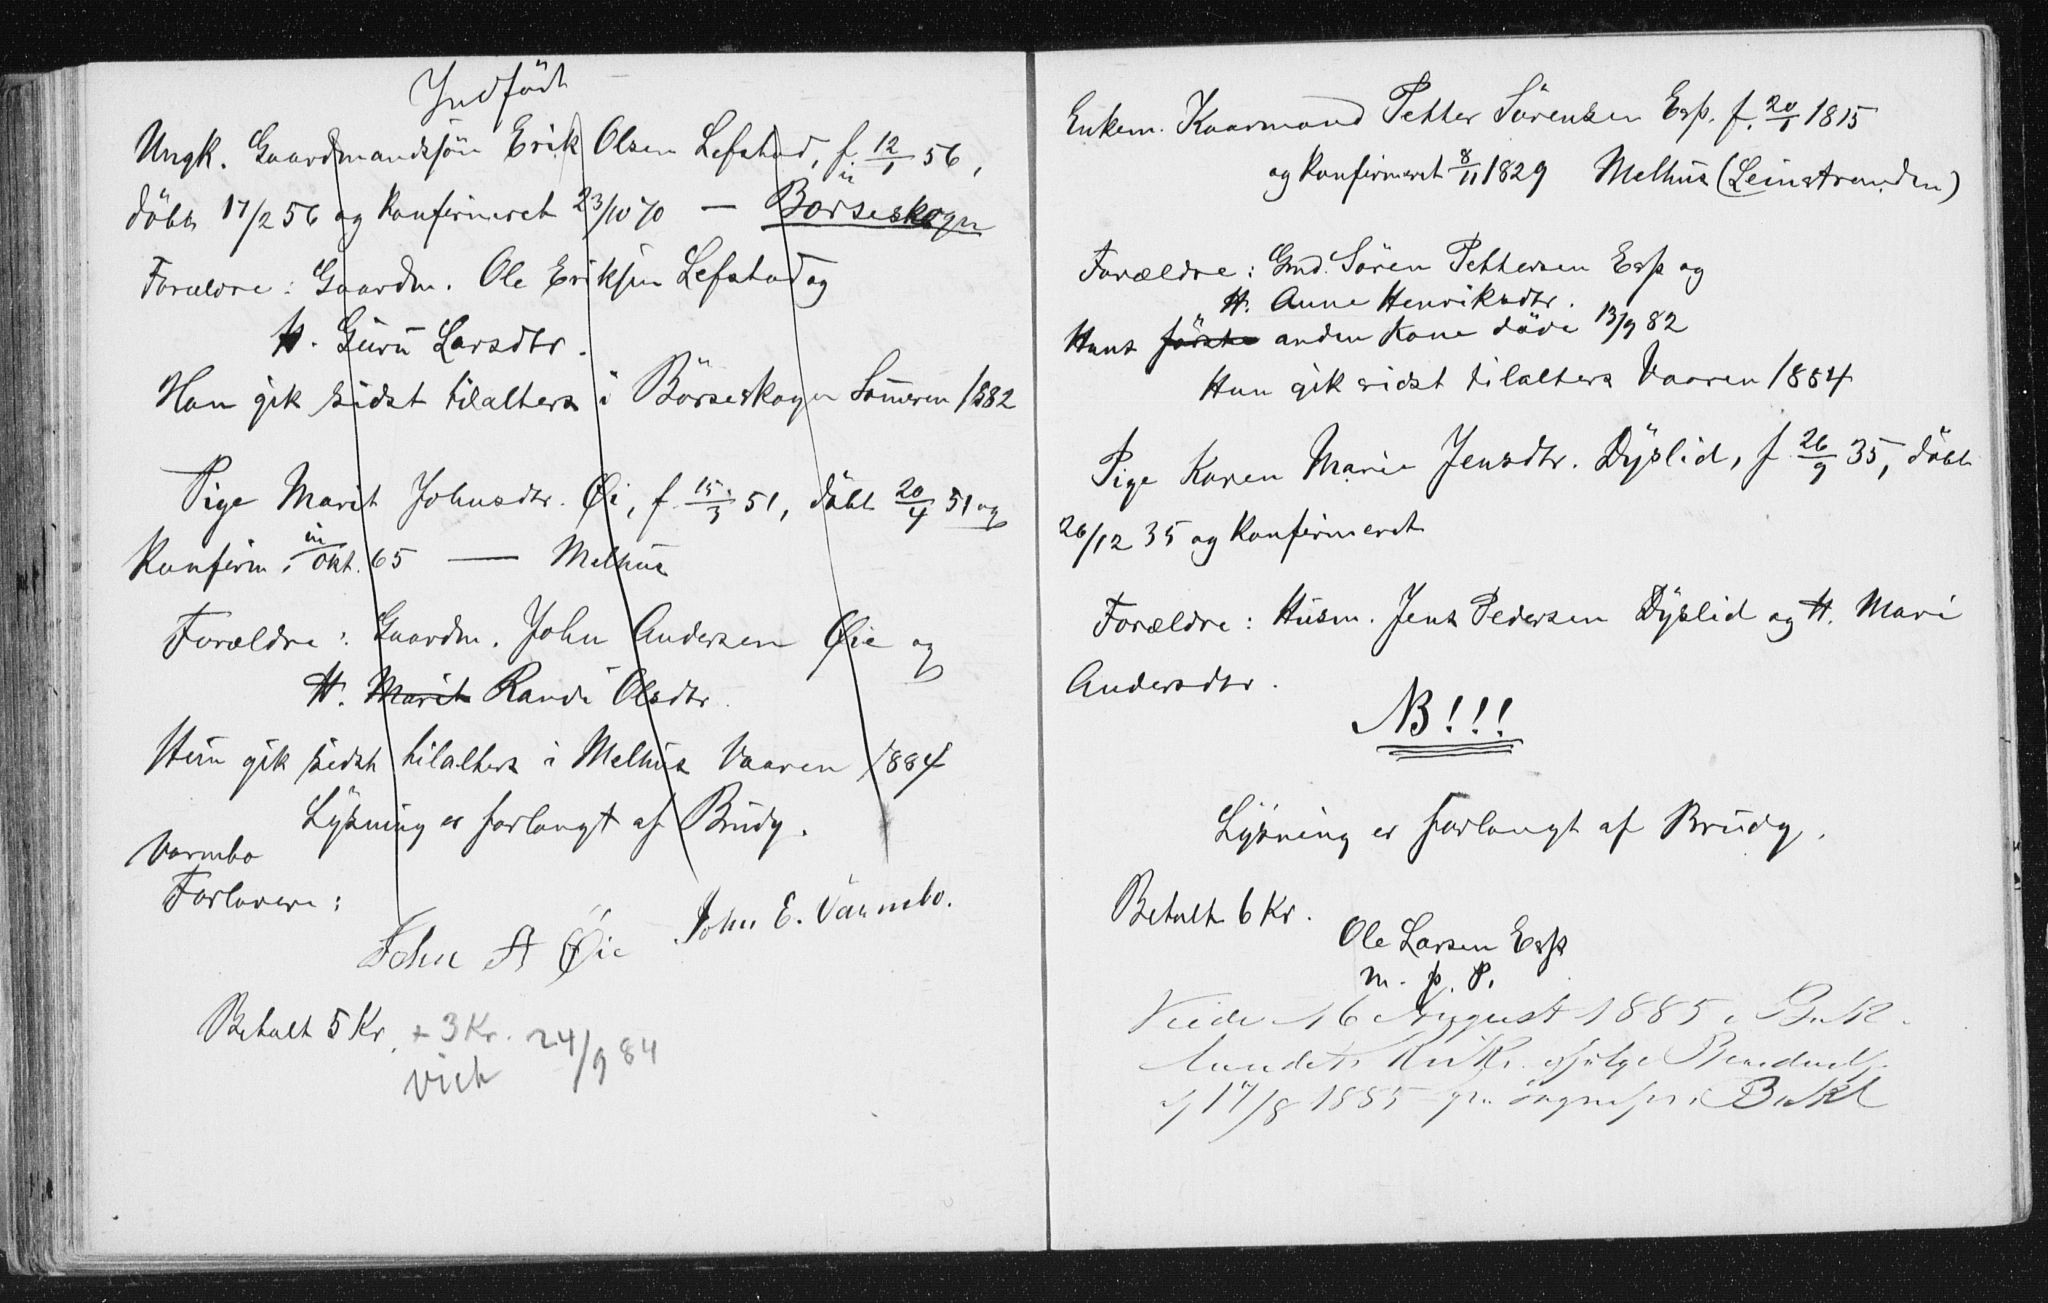 Indført
Ungk. Gaardmandssøn Erik Olsen Lefstad, f. 12/1 56,
döbt 17/2 56 og konfirmeret 23/10 70 — Börseskogn
Forældre: Gaardm. Ole Eriksen Lefstad og
H. Guru Larsdtr.
Han gik sidst tilalters i Börseskogn Sommeren 1882
Pige Marit Johnsdtr. Øi, f. 15/3 51, döbt 20/4 51 og
konfirm. in okt. 65 — Melhus
Forældre: Gaardm. John Andersen Øie og
H. Marit Randi Olsdtr.
Hun gik sidst tilalters i Melhus Vaaren 1884
Lysning er forlangt af Brudg.
Varmbo
Forlovere:
John A Øie John E. Varmbo.
Betalt 5 Kr. + 3 Kr. 24/9 84
Vich
Enkem. Kaarmand Petter Sörensen Esp. f. 20/1 1815
og konfirmeret 8/11 1829 Melhus (Leinstranden)
Forældre: Gmd. Sören Pettersen Esp og
H. Anne Henriksdtr.
Hans förste anden Kone döde 13/9 82
Han gik sidst tilalters Vaaren 1884
Pige Karen Marie Jensdtr. Dyslid, f 26/9 35, döbt
26/12 35 og konfirmeret
Forældre: Husm. Jens Pedersen Dyslid og H. Mari
Andersdtr.
NB!!!
Lysning er forlangt af Brudg.
Betalt 6 Kr.
Ole Larsen Esp
m. p. P.
Viede 16 August 1885 i Buk-
lundets Kirke ifølge
af 17/8 1885 fra Sognepr. i Bukl